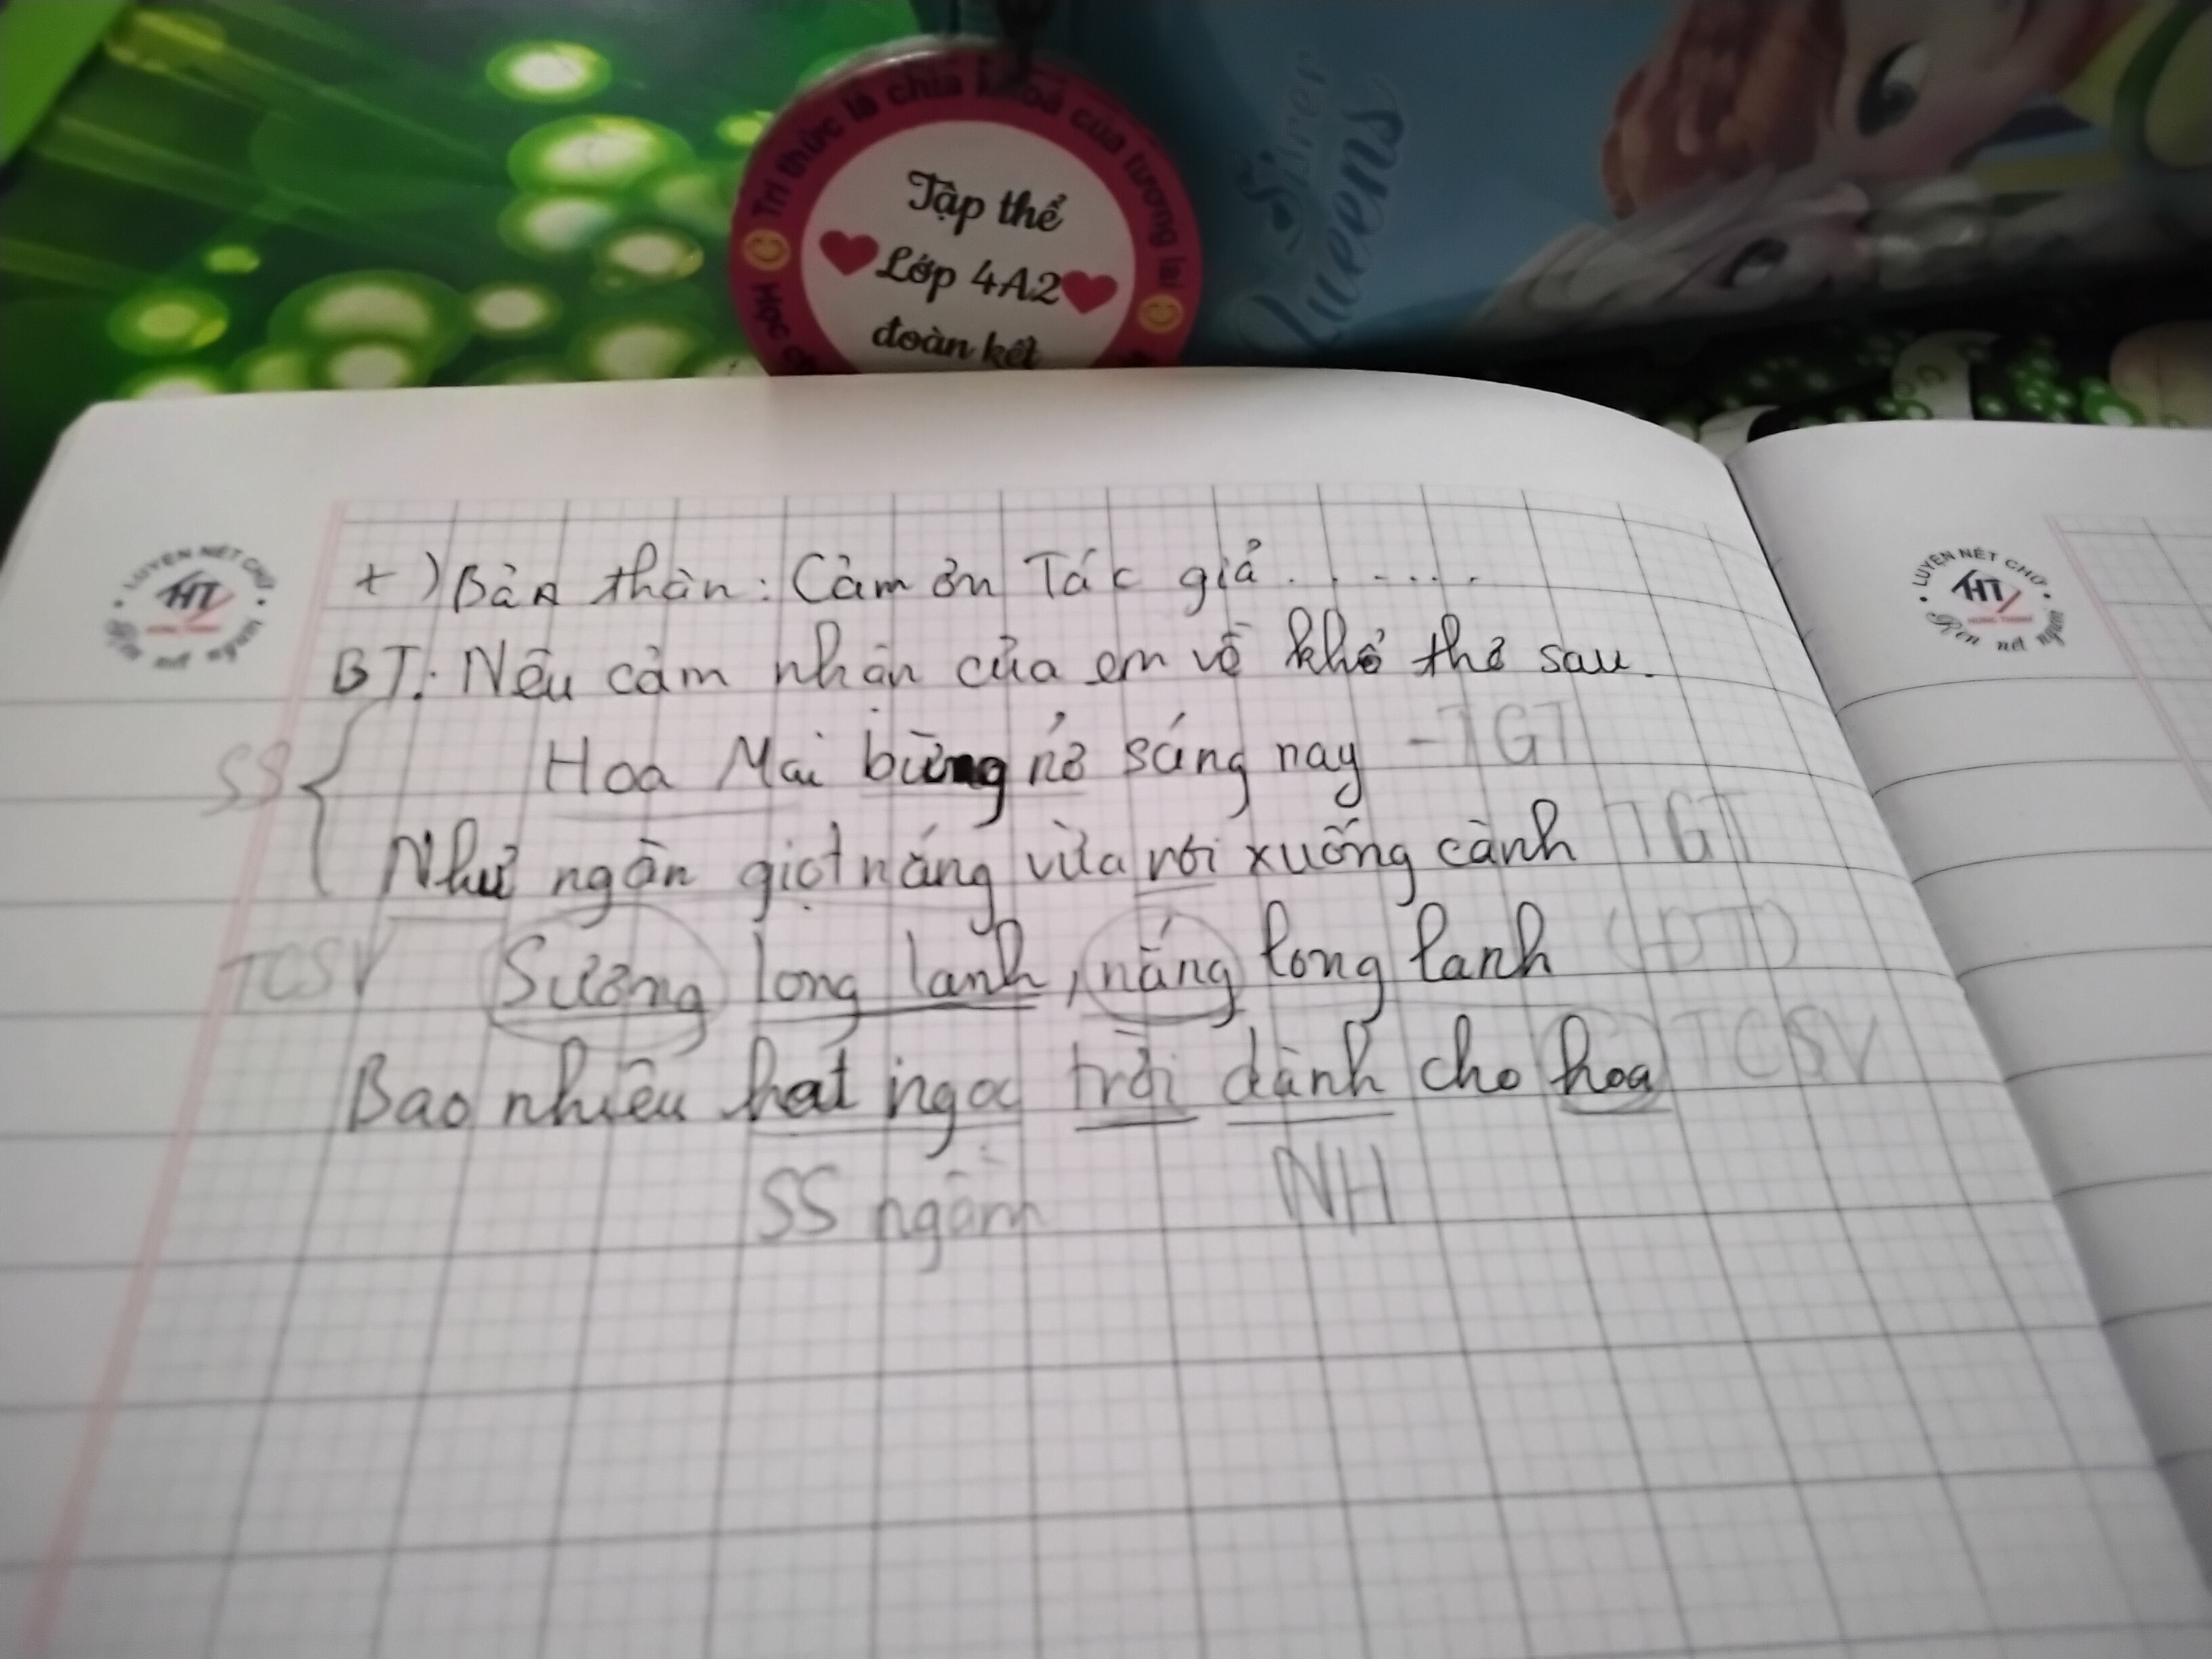 Học
Tri thức là chìa khoá của tương lai
Tập thể
Lớp 4A2
đoàn kết
Sister
Queens
LUYỆN NÉT CHỮ
HT
Rèn nết người
LUYỆN NÉT CHỮ
HT
HƯNG THỊNH
Rèn nết người
+) Bản thân: Cảm ơn Tác giả.......
BT: Nêu cảm nhận của em về khổ thơ sau.
SS { Hoa Mai bừng nở sáng nay - TGT
Như ngàn giọt nắng vừa rơi xuống cành TGT
TCSV Sương long lanh, nắng long lanh (ĐT)
Bao nhiêu hạt ngọc trời dành cho hoa TCSV
SS ngầm NH